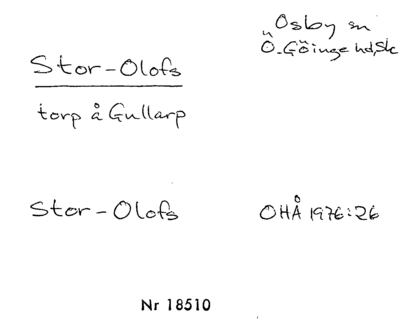 Osby sn
Ö. Göinge hd, Sk
Stor-Olofs
torp å Gullarp
Stor-Olofs
OHÅ 1976:26
Nr 18510